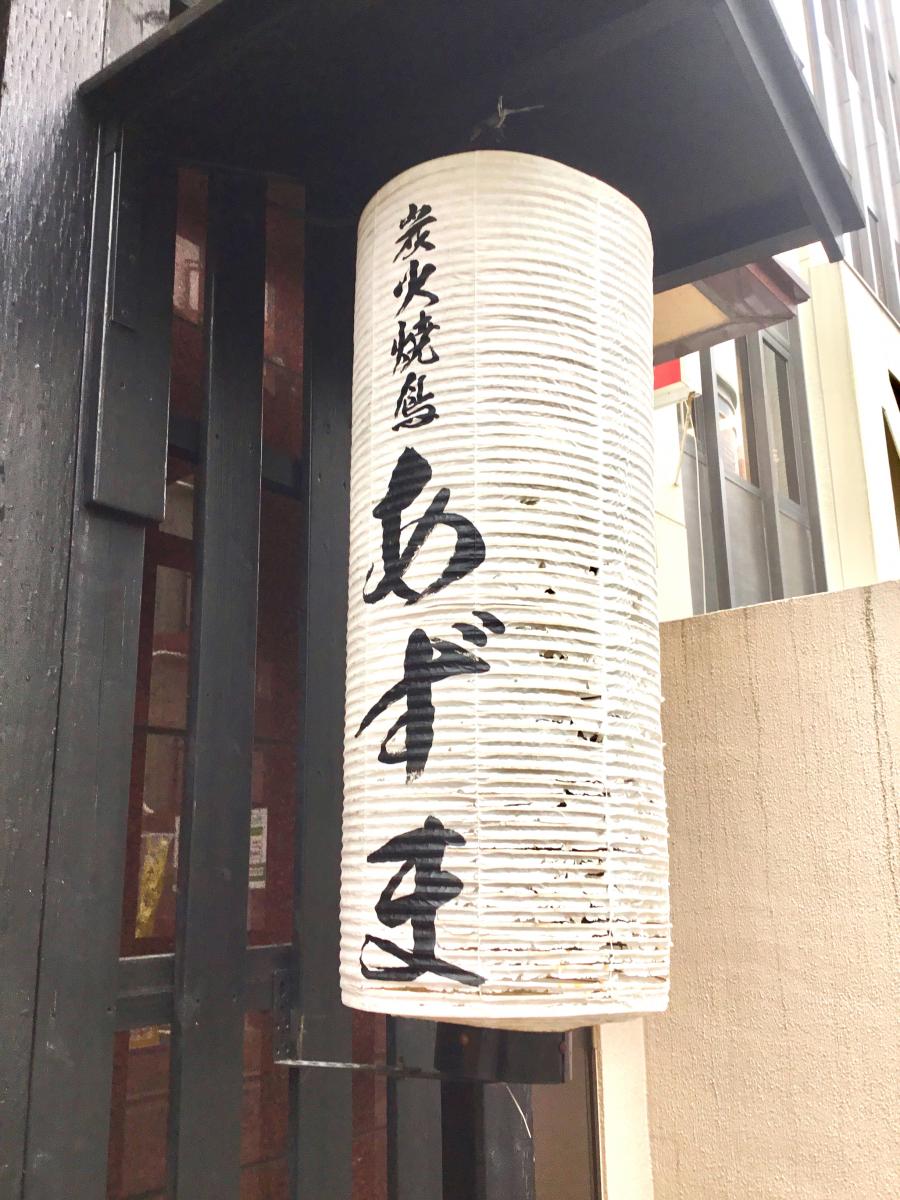 炭火焼鳥
あずま